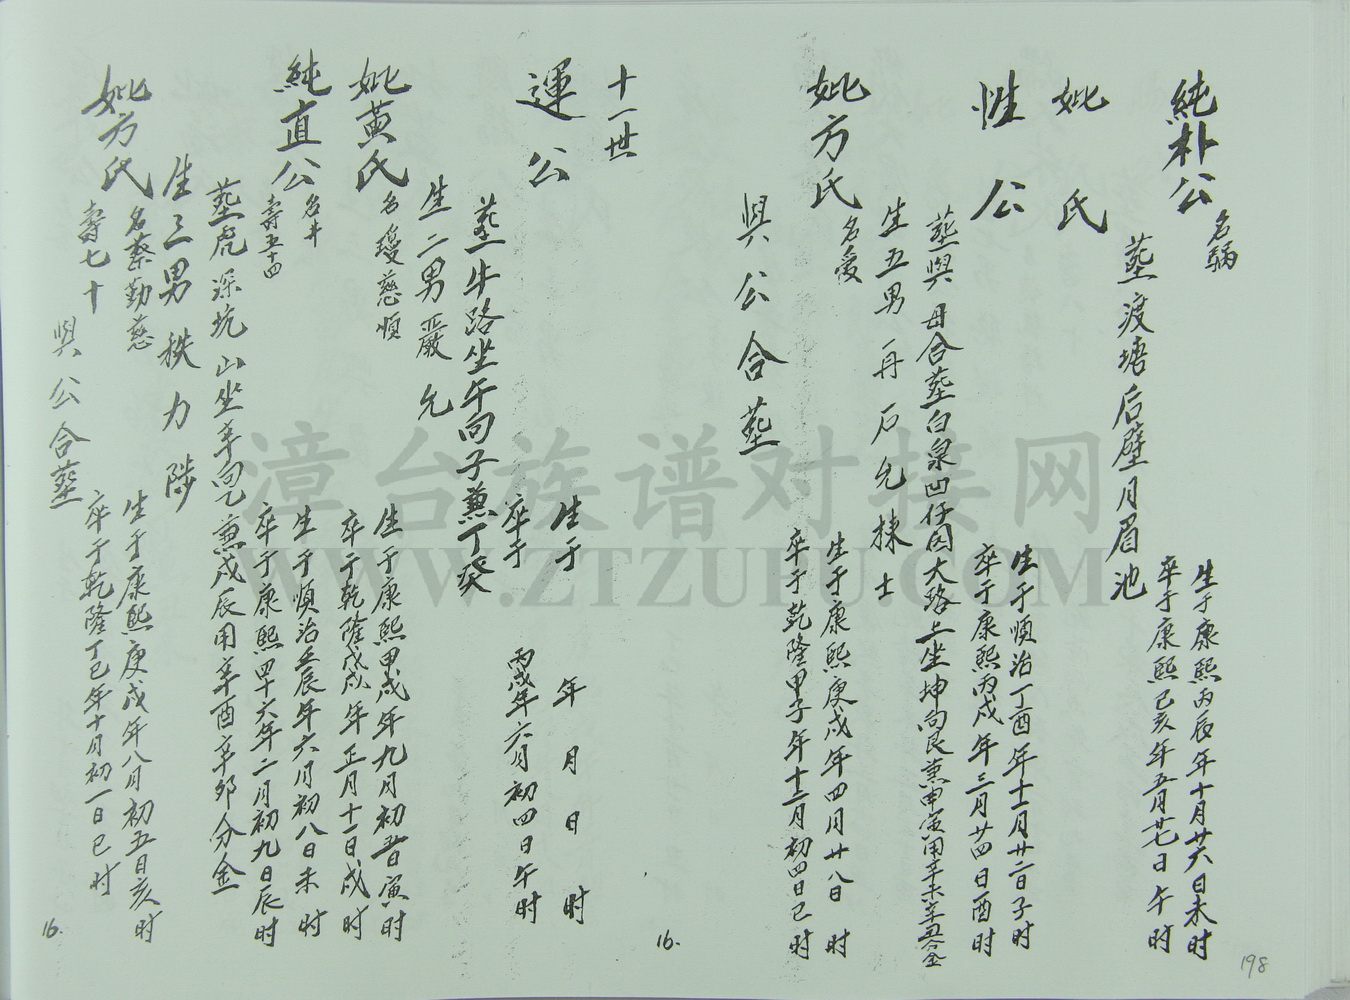 純朴公
名
生于康熙丙辰年十月廿六日未时
卒于康熙己亥年五月廿七日午时
塟渡塘后壁月眉池
妣 氏
性 公
生于順治丁酉年十一月廿二日子时
卒于康熙丙戌年三月廿四日酉时
塟與母合塟白泉凹仔因大路上坐坤向艮兼申寅用辛未辛丑分金
生五男 再 石 允 捸 士
妣方氏
名愛
生于康熙庚戌年四月廿八日 时
卒于乾隆甲子年十二月初四日巳时
與公合塟
十一世
運 公
生于 年 月 日 时
卒于 丙戌年六月初四日午时
塟牛路坐午向子兼丁癸
生二男嚴 允
妣黄氏
名瓊慈順
生于康熙甲戌年九月初 日寅时
卒于乾隆戊戌年正月十一日戌时
純直公
名井
壽五十四
生于順治壬辰年六月初八日未时
卒于康熙四十六年二月初九日辰时
塟虎深坑山坐辛向乙兼戌辰用辛酉辛卯分金
生三男 秩 力 陟
妣方氏
名蔡勤慈
壽七十
生于康熙庚戌年八月初五日亥时
卒于乾隆丁巳年十月初一日巳时
與公合塟
16.
16.
198
漳台族谱对接网
WWW.ZTZUPU.COM